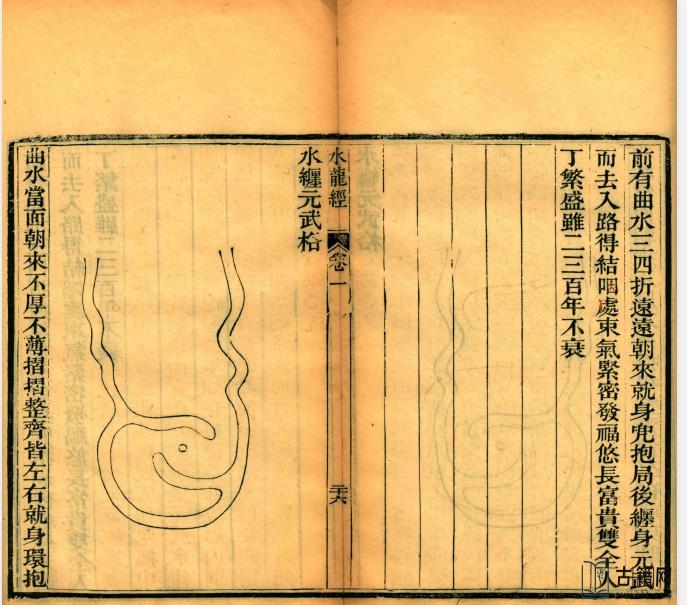 前有曲水三四折遠遠朝來就身兜抱局後纏身元
而去入路得結咽處束氣緊密發福悠長富貴雙全人
丁繁盛雖二三百年不衰
水龍經
卷一
二六
水纏元武格
曲水當面朝來不厚不薄摺摺整齊皆左右就身環抱
古籍网